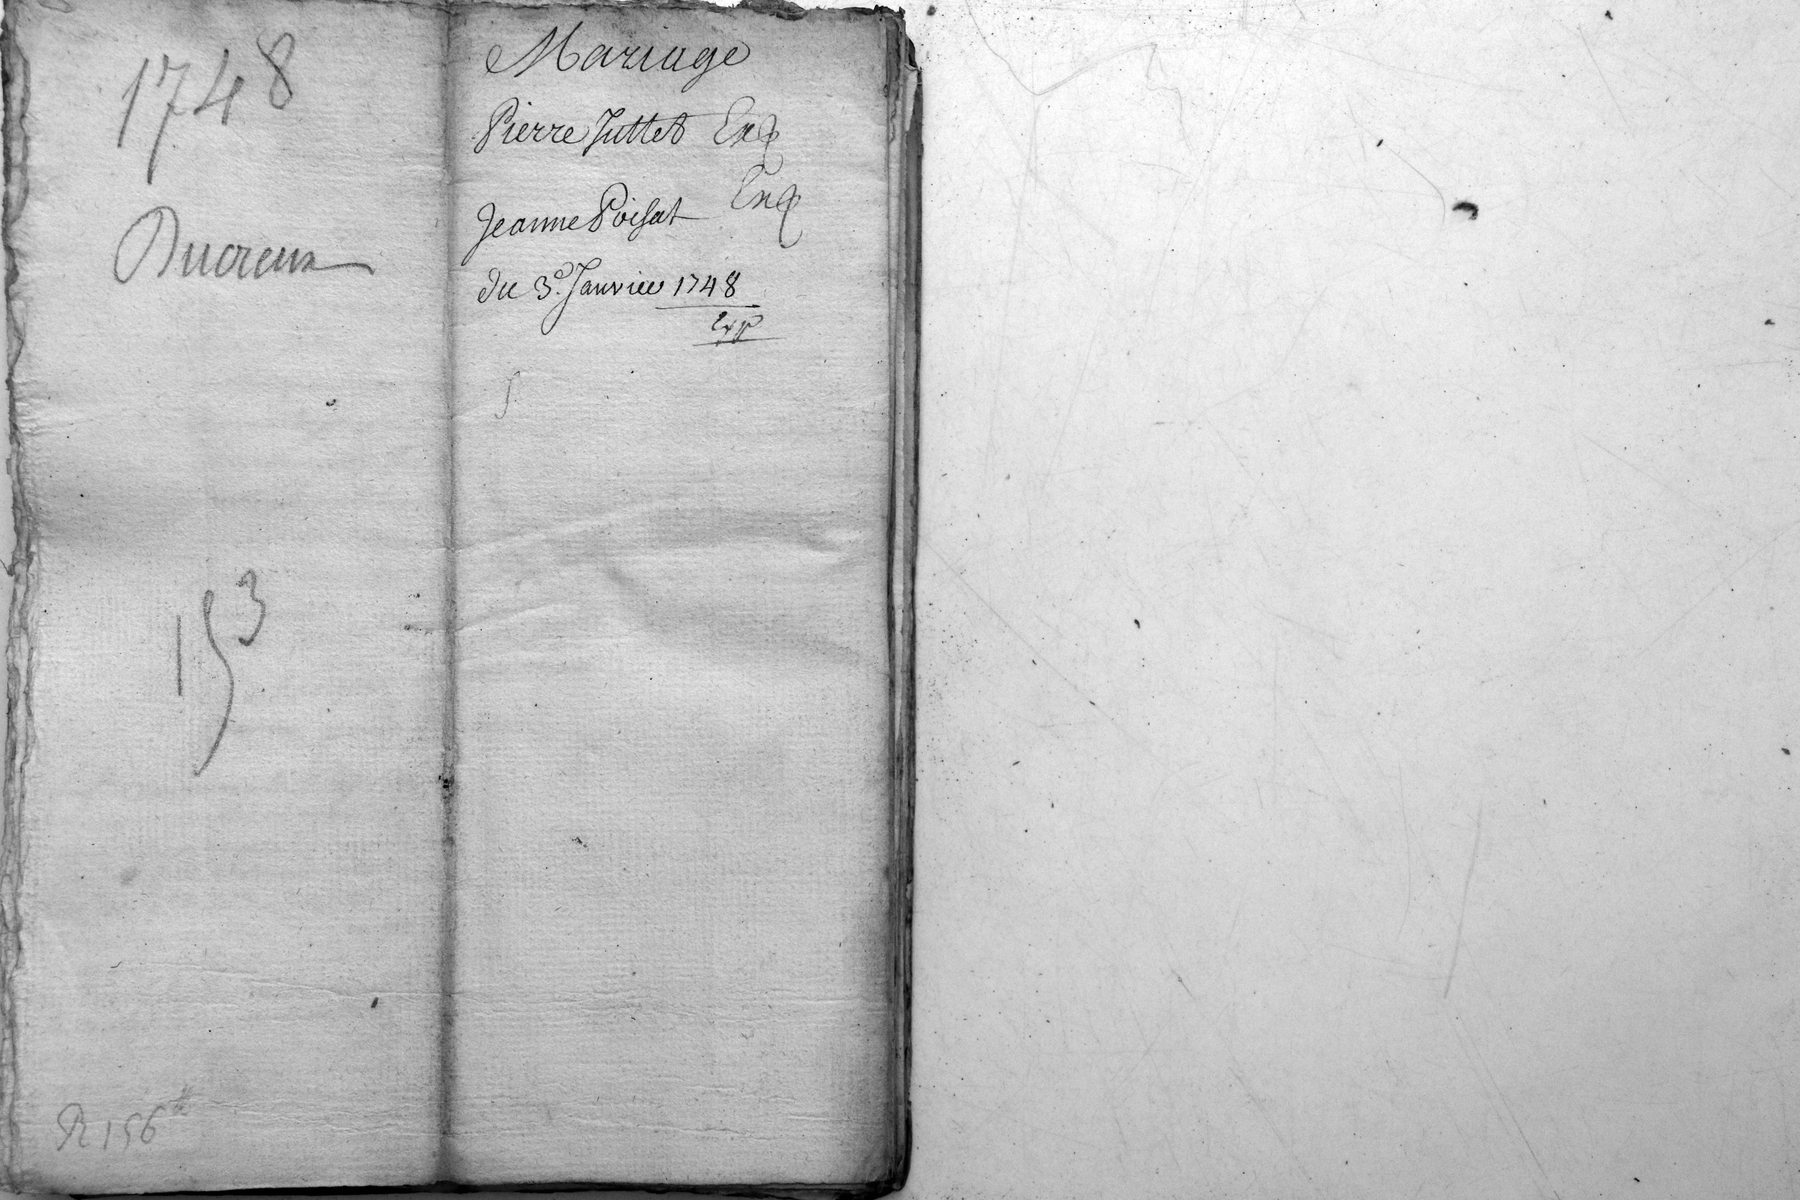 1748
Ducreux
153
R 156
Mariage
Pierre Juttet Exp
Jeanne Poisat Exp
du 3e. Janvier 1748
Exp